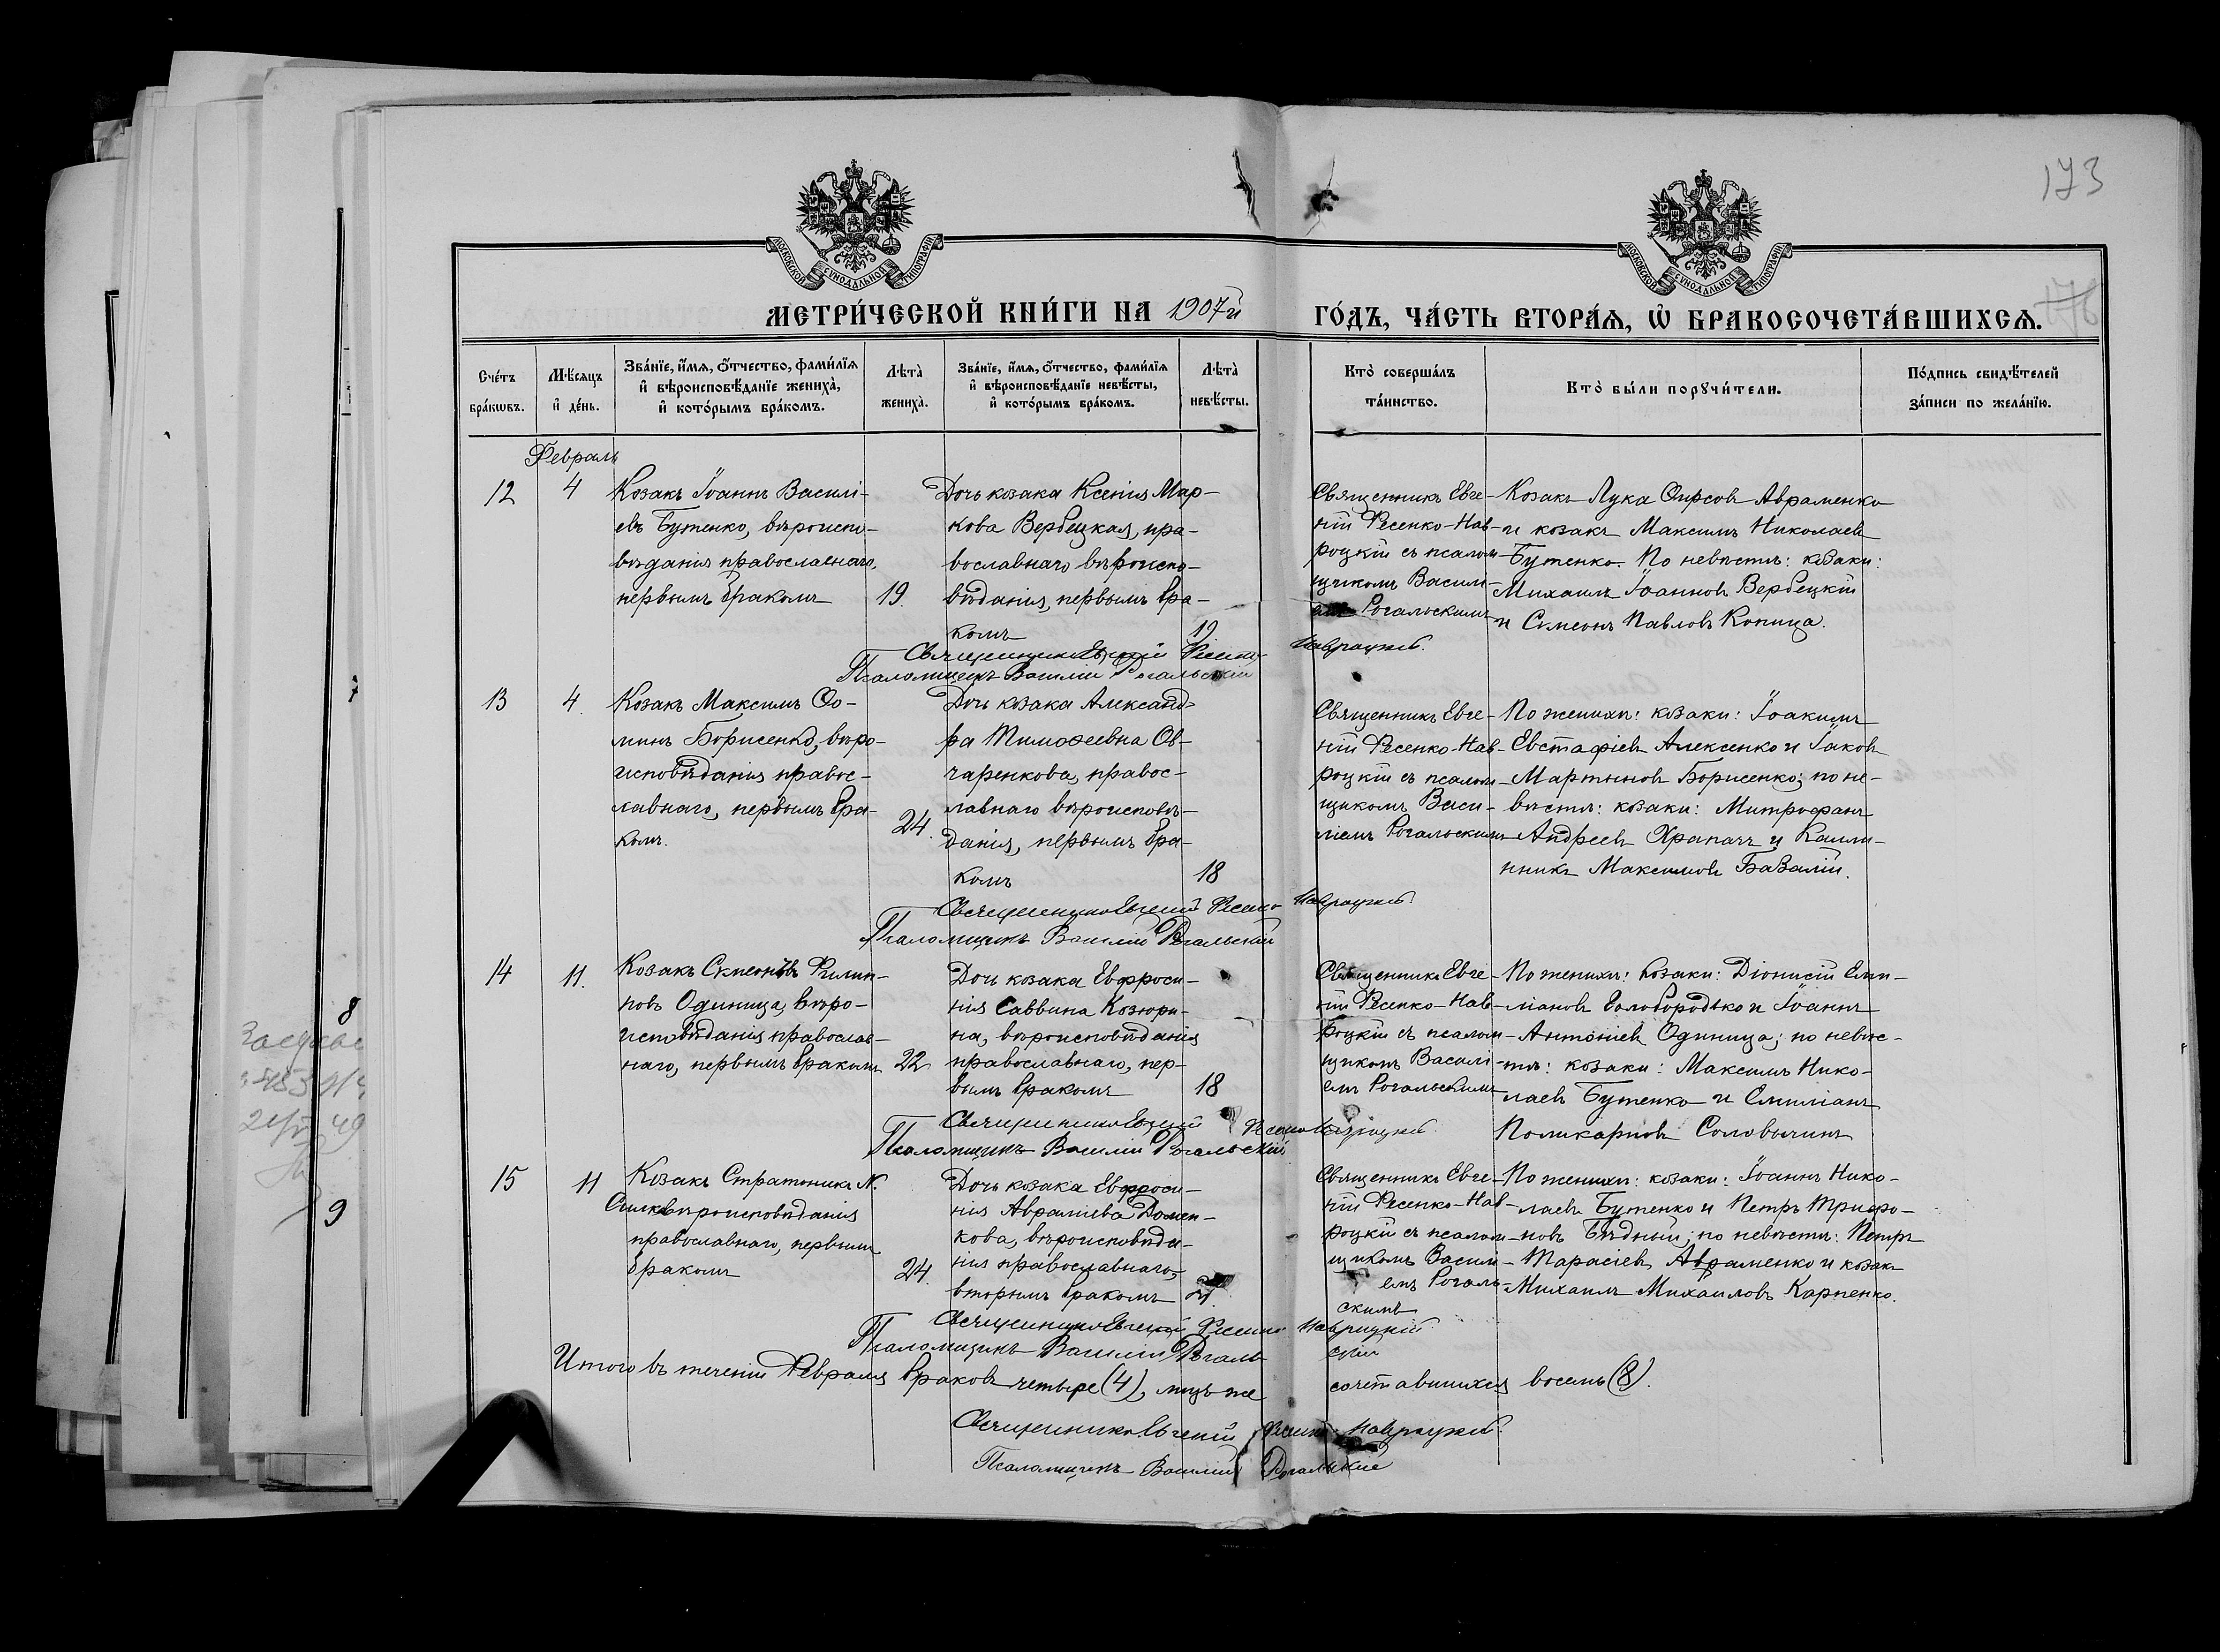 173
176
МОСКОВСКОЙ СѴНОДАЛЬНОЙ ТИПОГРАФІИ
МОСКОВСКОЙ СѴНОДАЛЬНОЙ ТИПОГРАФІИ
МЕТРИ́ЧЕСКОЙ КНИ́ГИ НА 1907й ГО́ДЪ, ЧА́СТЬ ВТОРА́Ѧ, Ѽ БРАКОСОЧЕТА́ВШИХСѦ.
Сче́тъ бра́кѡвъ.
Мѣ́сѧцъ и҆ де́нь.
Зва́нїе, и҆́мѧ, ѻ҆́тчество, фами́лїѧ
и҆ вѣроисповѣ́данїе жениха̀,
и҆ кото́рымъ бра́комъ.
Лѣта̀ жениха̀.
Зва́нїе, и҆́мѧ, ѻ҆́тчество, фами́лїѧ
и҆ вѣроисповѣ́данїе невѣ́сты,
и҆ кото́рымъ бра́комъ.
Лѣта̀ невѣ́сты.
Кто̀ соверша́лъ
та́инство.
Кто̀ бы́ли порꙋчи́тели.
По́дпись свидѣ́телей
за́писи по жела́нїю.
Февраль
12
4
Козакъ Іоаннъ Василі-
евъ Бутенко, вѣроиспо-
вѣданія православнаго,
первымъ бракомъ
19.
Дочь козака Ксенія Мар-
кова Вербецкая, пра-
вославнаго вѣроиспо-
вѣданія, первымъ бра-
комъ
19
Священникъ Евге-
ній Фесенко-Нав-
роцкій съ псалом-
щикомъ Василі-
Рогальскимъ
Козакъ Лука Ѳирсовъ Авраменко
и козакъ Максимъ Николаевъ
Бутенко. По невѣстѣ: козаки:
Михаилъ Іоанновъ Вербецкій
и Сѵмеонъ Павловъ Копица.
Священникъ Евгеній Фесенко-Навроцкій.
Псаломщикъ Василій Рогальскій
13
4.
Козакъ Максимъ Ѳо-
минъ Борисенко, вѣро-
исповѣданія правос-
лавнаго, первымъ бра-
комъ.
24.
Дочь козака Александ-
ра Тимоѳеевна Ов-
чаренкова, правос-
лавнаго вѣроисповѣ-
данія, первымъ бра-
комъ
18
Священникъ Евге-
ній Фесенко-Нав-
роцкій съ псалом-
щикомъ Васи-
ліемъ Рогальскимъ
По женихѣ: козаки: Іоакимъ
Евстафіевъ Алексенко и Іаковъ
Мартыновъ Борисенко; по не-
вѣстѣ: козаки: Митрофанъ
Андреевъ Храпачъ и Калли-
никъ Максимовъ Бавалій.
Священникъ Евгеній Фесенко-Навроцкій
Псаломщикъ Василій Рогальскій
14
11.
Козакъ Сѵмеонъ Филип-
повъ Одиница, вѣро-
исповѣданія православ-
наго, первымъ бракомъ
22
Дочь козака Евфроси-
нія Саввина Козюри-
на, вѣроисповѣданія
православнаго, пер-
вымъ бракомъ
18
Священникъ Евге-
ній Фесенко-Нав-
роцкій съ псалом-
щикомъ Василі-
емъ Рогальскимъ
По женихѣ: козаки: Діонисій Еми-
ліановъ Голобородько и Іоаннъ
Антоніевъ Одиница; по невѣс-
тѣ: козаки: Максимъ Нико-
лаевъ Бутенко и Емиліанъ
Поликарповъ Соловычинъ
Священникъ Евгеній Фесенко-Навроцкій
Псаломщикъ Василій Рогальскій
15
11
Козакъ Стратоникъ N.
вѣроисповѣданія
православнаго, первымъ
бракомъ
24.
Дочь козака Евфроси-
нія Авраміева Домен-
кова, вѣроисповѣда-
нія православнаго,
вторымъ бракомъ
21.
Священникъ Евге-
ній Фесенко-Нав-
роцкій съ псалом-
щикомъ Васили-
емъ Рогаль-
скимъ
По женихѣ: козаки: Іоаннъ Нико-
лаевъ Бутенко и Петръ Трифо-
новъ Бѣдный; по невѣстѣ: Петръ
Тарасіевъ Авраменко и козакъ
Михаилъ Михаиловъ Карпенко.
Священникъ Евгеній Фесенко-Навроцкій
Псаломщикъ Василій Рогальскій
Итого въ теченіи Февраля браковъ четыре (4), лицъ же сочетавшихся восемь (8).
Священникъ Евгеній Фесенко-Навроцкій.
Псаломщикъ Василій Рогальскій
7
8
9